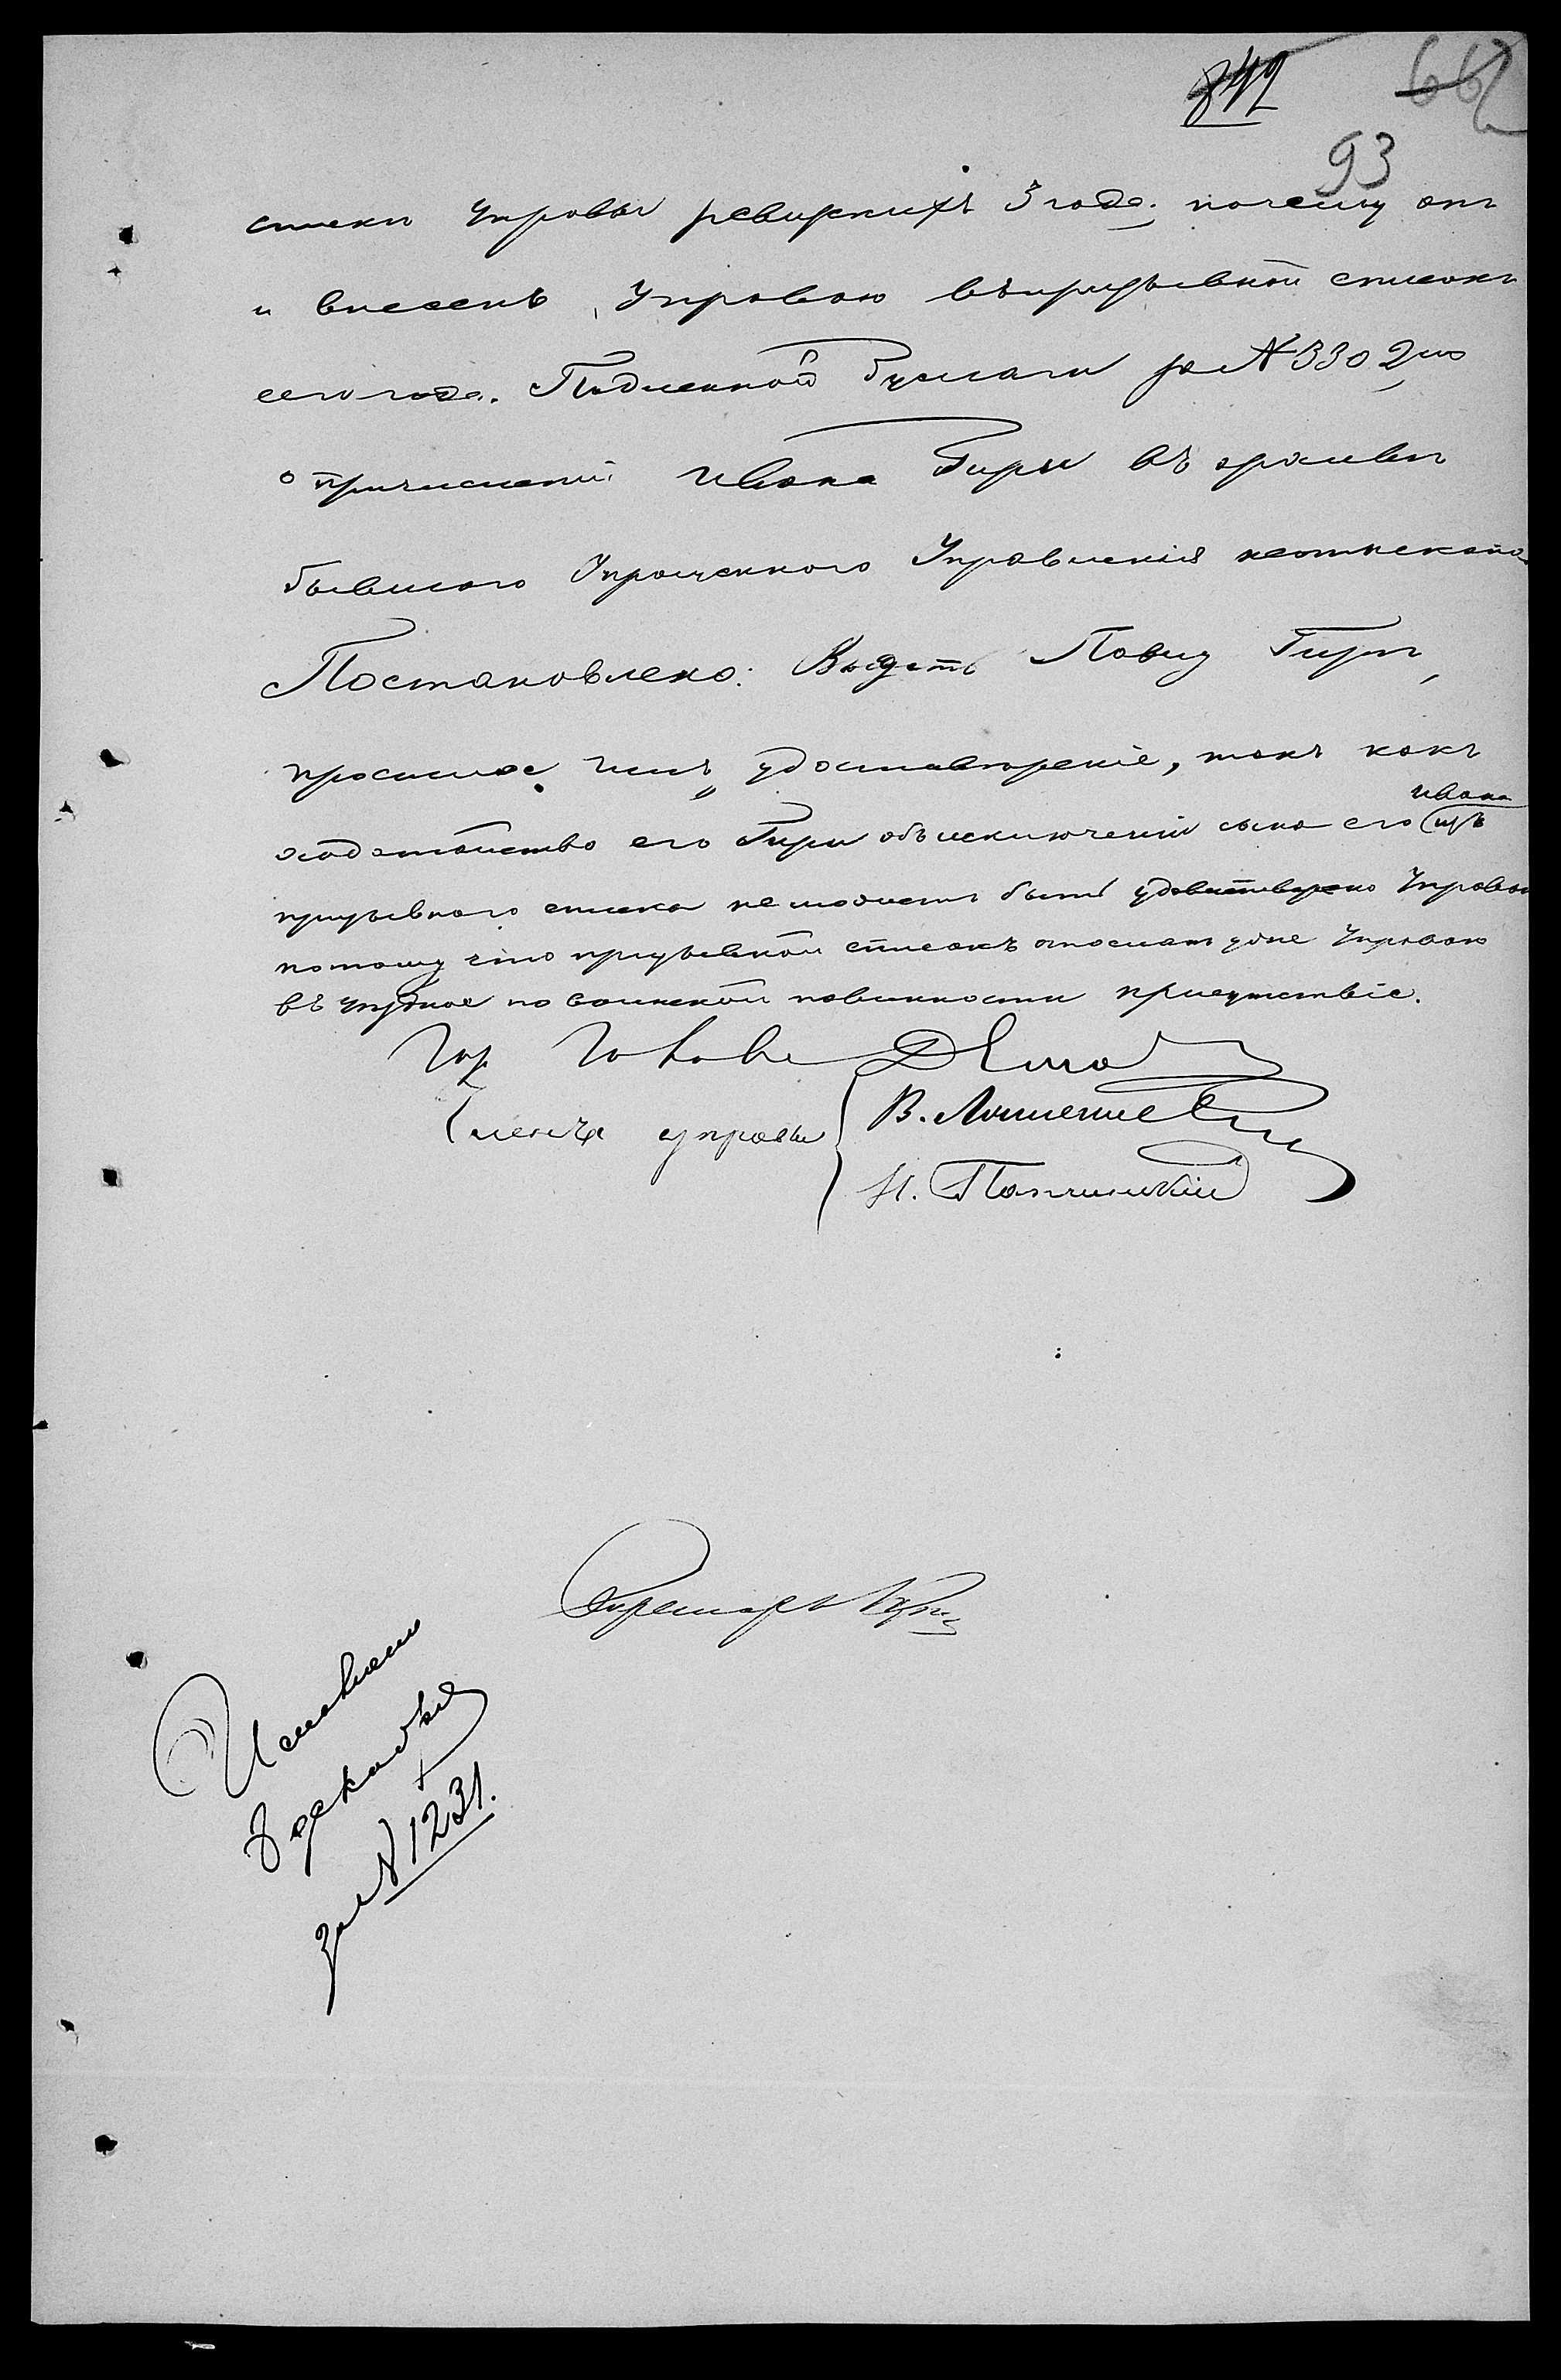 842 662
93
списки Управы ревизскихъ 3 года. почему онъ
и внесенъ Управою въ призывной списокъ
сего года. Подлинной бумаги за № 3302мъ
о причислении Ивана Гиры въ архивъ
бывшаго Управленія неотыскано
Постановлено: Выдать Гиръ,
просимое имъ удостовѣреніе, такъ какъ
Ивана
ходатайство его Гиры объ исключеніи сына его изъ
призывнаго списка не можетъ быть удовлетворено Управою
потому что призывной списокъ отосланъ уже Управою
въ уѣздное по воинской повинности присутствіе.
Гор Голова
Члены управы
В.
Н.
Секретарь
Исполнено
за № 1231.